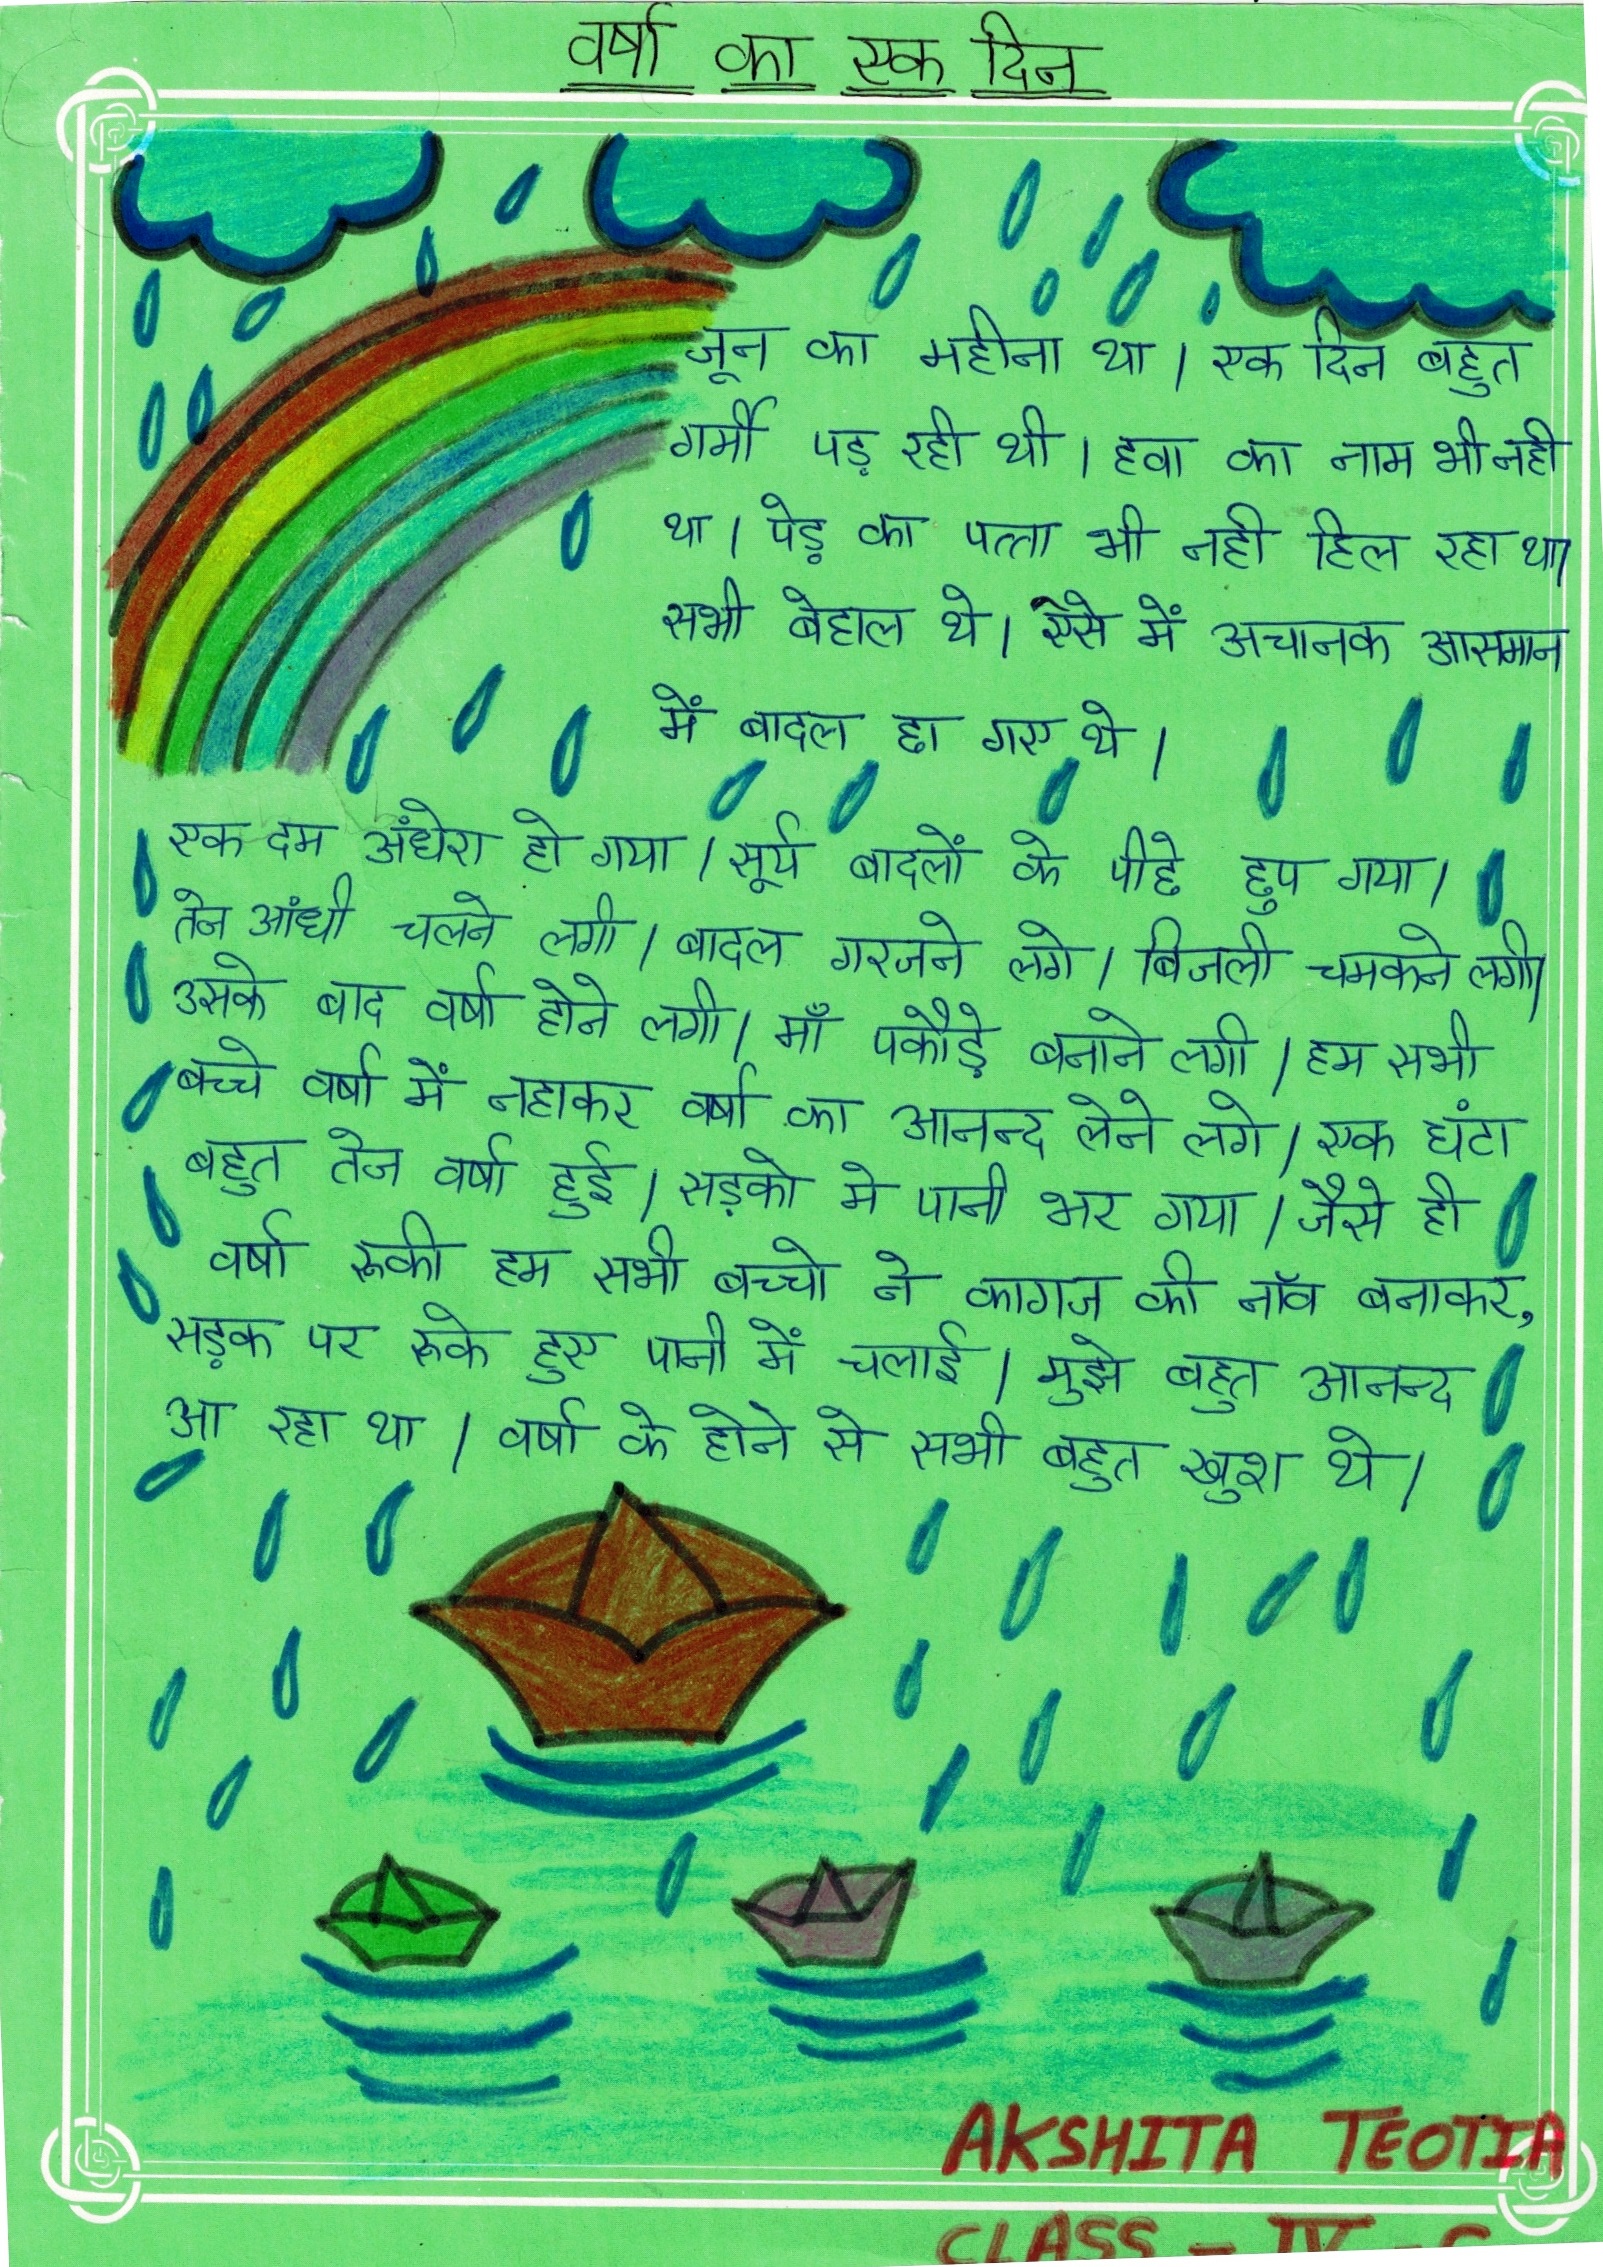 वर्षा का एक दिन
जून का महीना था। एक दिन बहुत
गर्मी पड़ रही थी। हवा का नाम भी नही
था। पेड़ का पत्ता भी नही हिल रहा था।
सभी बेहाल थे। ऐसे में अचानक आसमान
में बादल छा गए थे।
एक दम अंधेरा हो गया। सूर्य बादलों के पीछे छुप गया।
तेज आंधी चलने लगी। बादल गरजने लगे। बिजली चमकने लगी।
उसके बाद वर्षा होने लगी। माँ पकौड़े बनाने लगी। हम सभी
बच्चे वर्षा में नहाकर वर्षा का आनन्द लेने लगे। एक घंटा
बहुत तेज वर्षा हुई। सड़को मे पानी भर गया। जैसे ही
वर्षा रूकी हम सभी बच्चो ने कागज की नॉव बनाकर,
सड़क पर रूके हुए पानी में चलाई। मुझे बहुत आनन्द
आ रहा था। वर्षा के होने से सभी बहुत खुश थे।
AKSHITA TEOTIA
CLASS - IV -